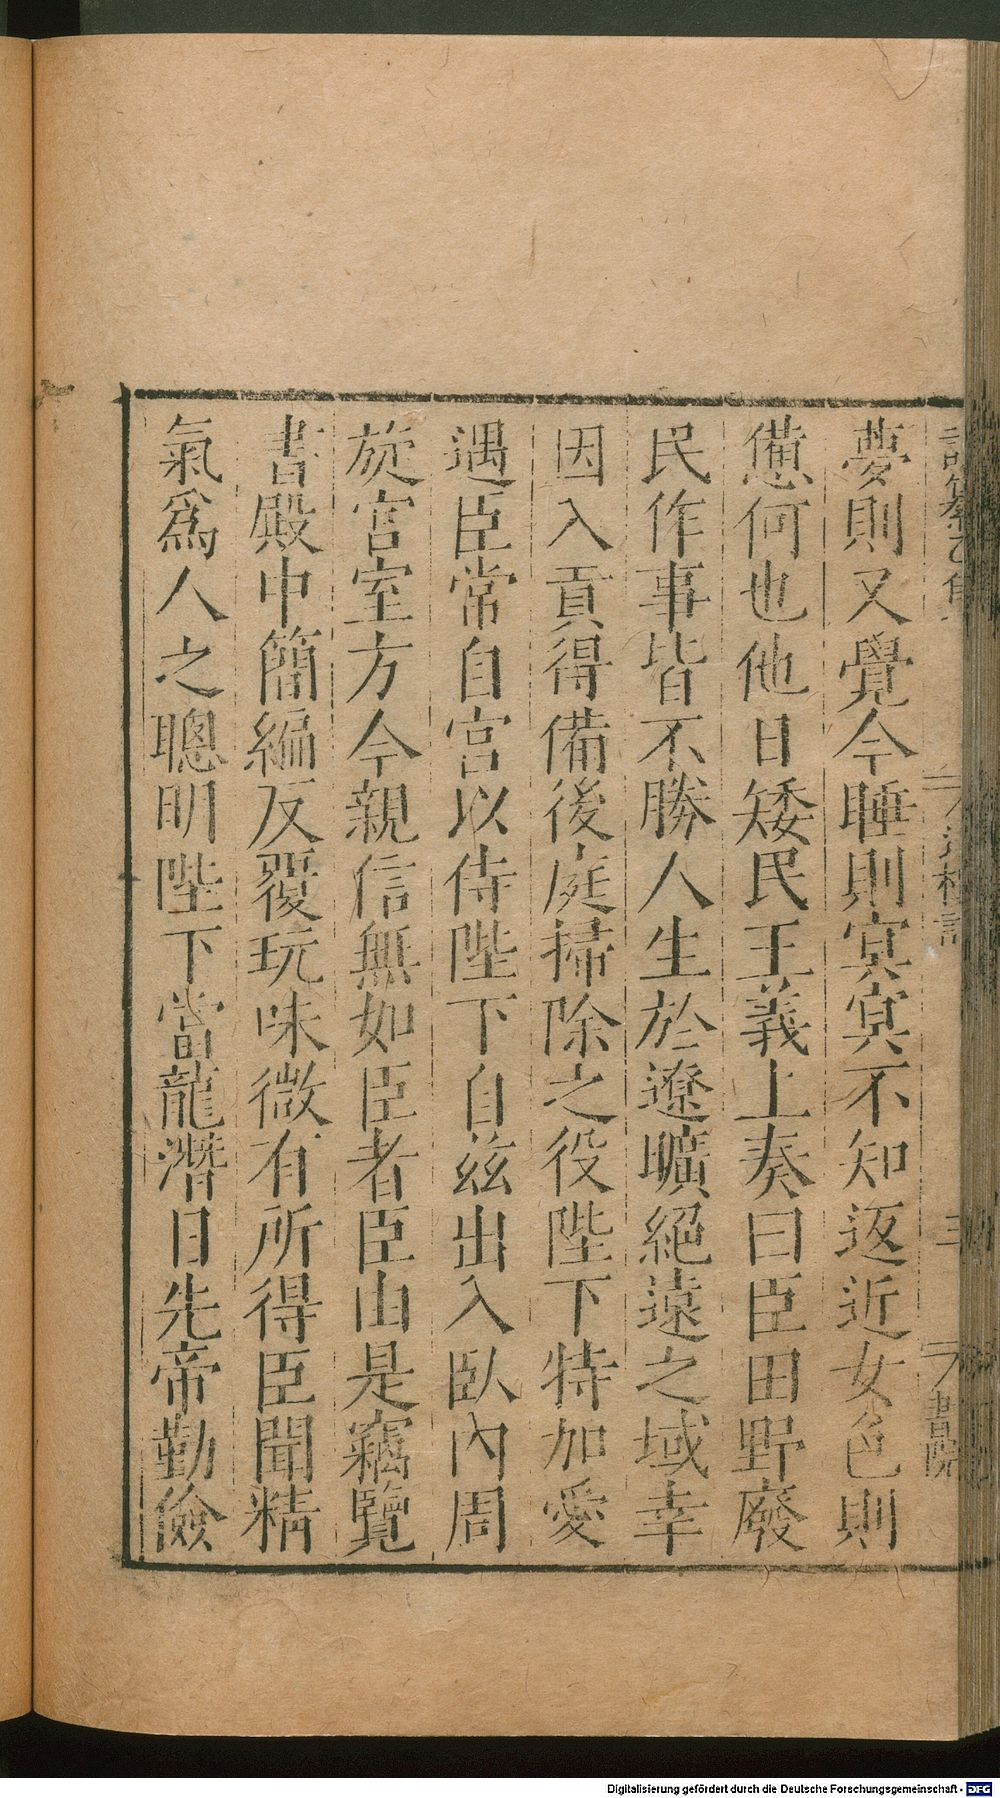 夢則又覺今睡則㝠㝠不知返近女色則
憊何也他日矮民王義上奏曰臣田野廢
民作事皆不勝人生於遼曠絕遠之域幸
因入貢得備後庭掃除之役陛下特加愛
遇臣常自宮以侍陛下自茲出入臥內周
旋宮室方今親信無如臣者臣由是竊覽
書殿中簡編反覆玩味微有所得臣聞精
氣爲人之聰明陛下當龍潛日先帝勤儉
三
書院
Digitalisierung gefördert durch die Deutsche Forschungsgemeinschaft - DFG